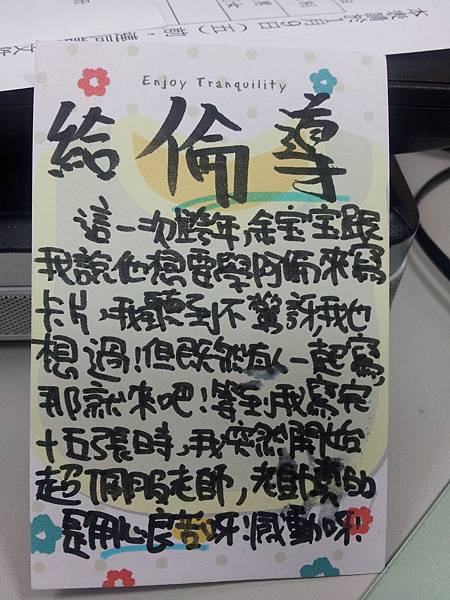 本表請於1月9日(五)前,擲回
Enjoy Tranquility
給倫導
這一次跨年,余宝宝跟
我說他想要學阿倫來寫
卡片,我聽到不驚訝,我也
想過!但既然有人一起寫,
那就來吧!等到我寫完
十五張時,我突然開始
超佩服老師,老師真的
是用心良苦呀!感動呀!